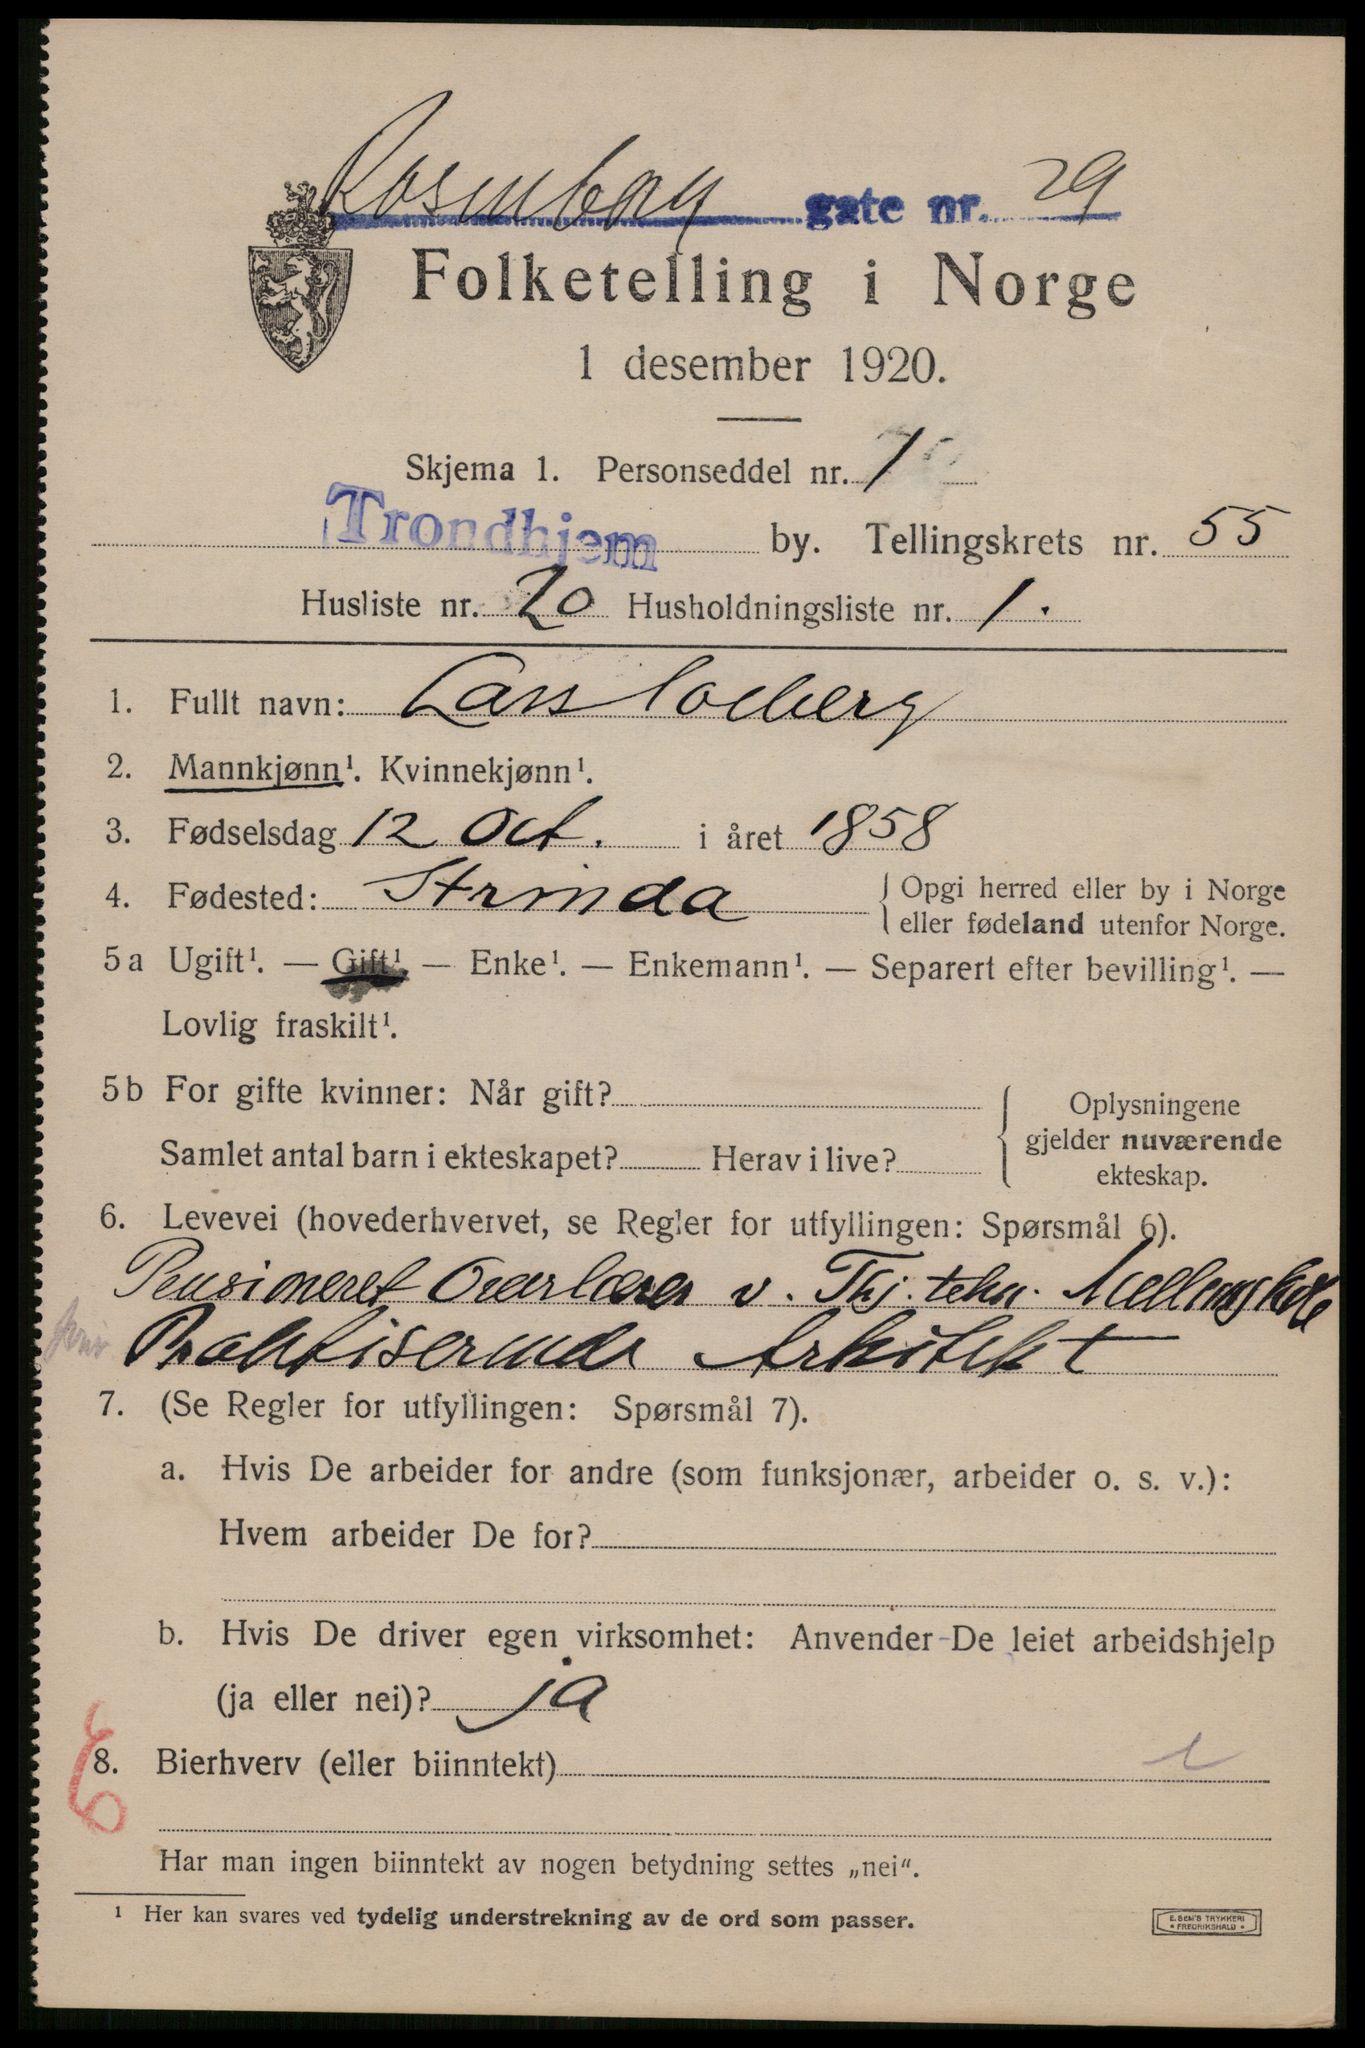 Rosenborg gate nr. 29
Folketelling i Norge
1 desember 1920.
Skjema 1. Personseddel nr. 1
Trondhjem by. Tellingskrets nr. 55
Husliste nr. 20 Husholdningsliste nr. 1.
1. Fullt navn: Lars Solberg
2. Mannkjønn¹. Kvinnekjønn¹.
3. Fødselsdag 12 Oct. i året 1858
4. Fødested: Strinda { Opgi herred eller by i Norge
eller fødeland utenfor Norge.
5a Ugift¹. — Gift¹ — Enke¹. — Enkemann¹. — Separert efter bevilling¹. —
Lovlig fraskilt¹.
5b For gifte kvinner: Når gift?
Samlet antal barn i ekteskapet? Herav i live?
Oplysningene
gjelder nuværende
ekteskap.
6. Levevei (hovederhvervet, se Regler for utfyllingen: Spørsmål 6).
Pensioneret Overlærer v. Thj. tekn. Mellemskole
Praktiserende Arkitekt
7. (Se Regler for utfyllingen: Spørsmål 7).
a. Hvis De arbeider for andre (som funksjonær, arbeider o. s. v.):
Hvem arbeider De for?
b. Hvis De driver egen virksomhet: Anvender De leiet arbeidshjelp
(ja eller nei)? ja
8. Bierhverv (eller biinntekt)
Har man ingen biinntekt av nogen betydning settes „nei".
¹ Her kan svares ved tydelig understrekning av de ord som passer.
E. SEM'S TRYKKERI
* FREDRIKSHALD *